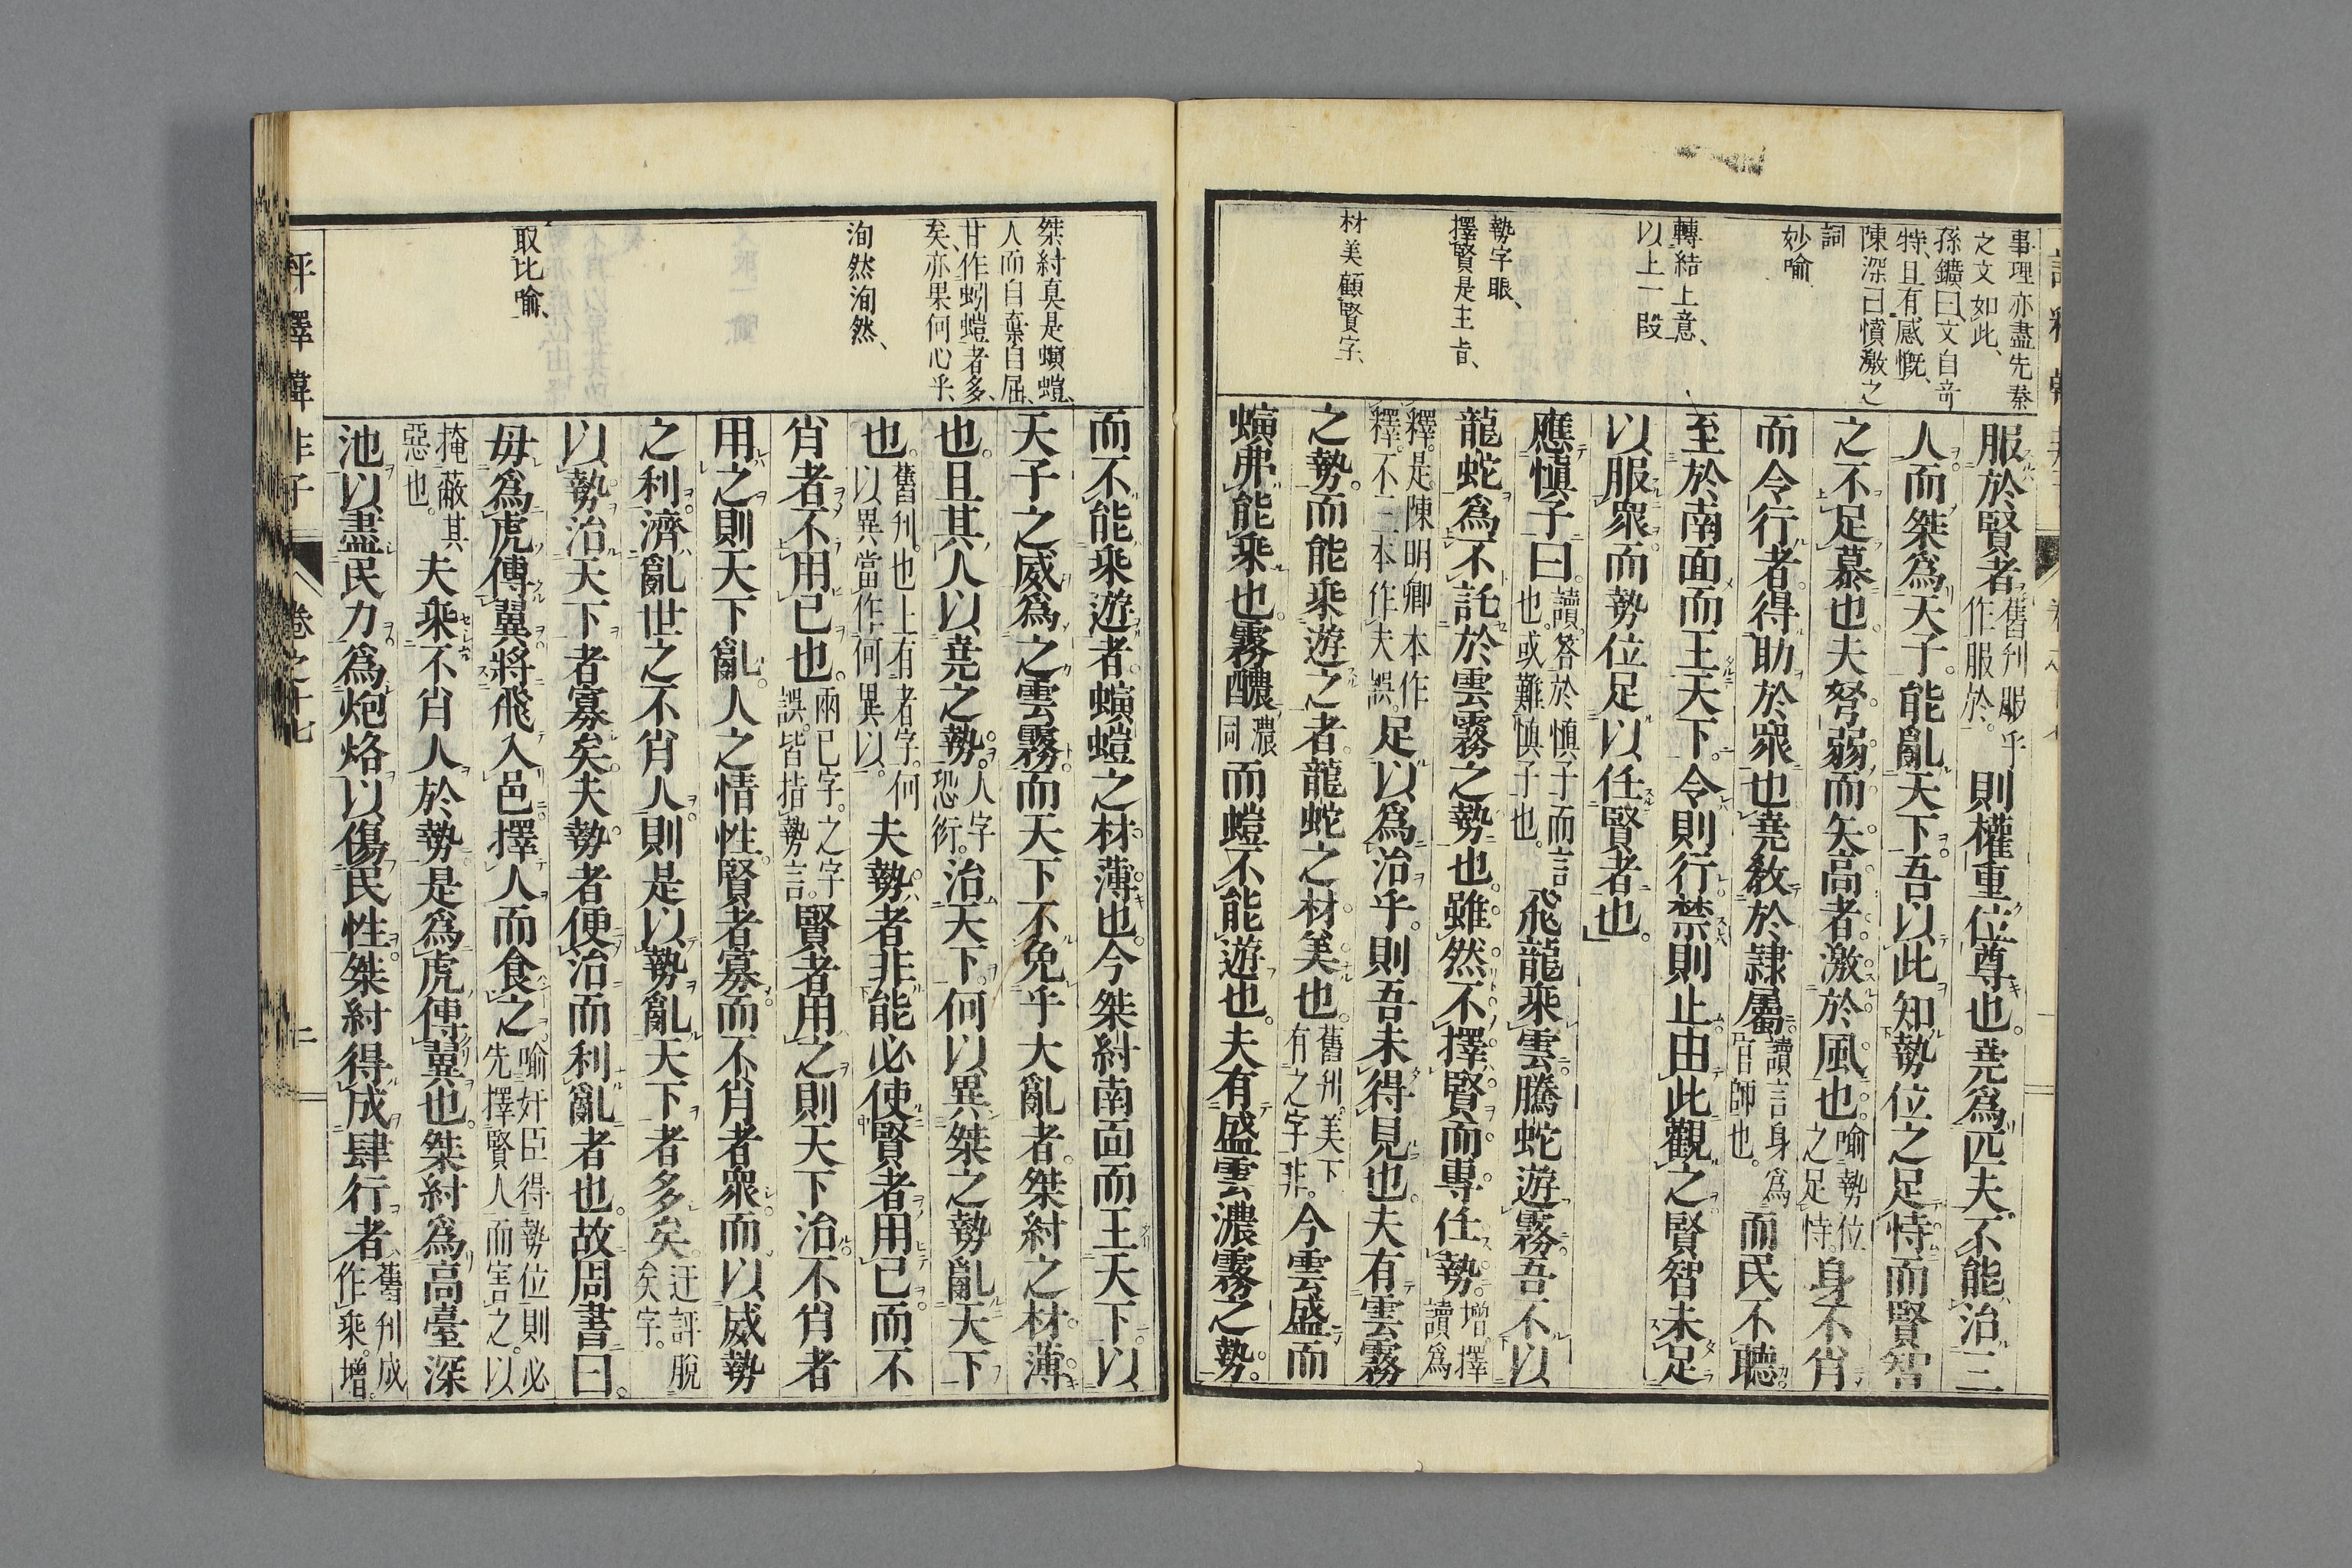 事理亦盡先秦
之文如此、
孫鑛曰、文自奇
特、且有感慨、
陳深曰憤激之
詞
妙喻
轉結上意、
以上一段
勢字眼、
擇賢是主旨、
材美顧賢字、
服於賢者舊刋服乎作服於。則權重位尊也。堯爲匹夫不能治三
人而桀爲天子。能亂天下。吾以此知勢位之足恃而賢智
之不足慕也夫弩弱而矢高者激於風也喻勢位之足恃。身不肖
而令行者得助於衆也堯敎於隷屬讀言身爲官師也。而民不聽
至於南面而王天下。令則行禁則止由此觀之賢智未足
以服衆而勢位足以任賢者也。
應愼子曰。讀。答於愼子而言也。或難愼子也。飛龍乘雲騰蛇遊霧吾不以
龍蛇爲不託於雲霧之勢也。雖然不擇賢而專任勢。增。擇讀爲
釋。是陳明卿本作釋。不二本作夫誤。足以爲治乎。則吾未得見也夫有雲霧
之勢。而能乘遊之者龍蛇之材美也。舊刋。美下有之字非。今雲盛而
螾弗能乘也霧醲濃同而螘不能遊也。夫有盛雲濃霧之勢。
桀紂真是螾螘、
人而自棄自屈、
甘作蚓螘者多、
矣、亦果何心乎、
洵然洵然、
取比喻、
而不能乘遊者。螾螘之材薄也。今桀紂南面而王天下。以
天子之威爲之雲霧而天下不免乎大亂者。桀紂之材薄
也。且其人以堯之勢。人字恐衍。治天下。何以異桀之勢亂天下
也。舊刋。也上有者字。何以異當作何異以。夫勢者非能必使賢者用己而不
肖者不用已也。兩已字。之字誤。皆指勢言。賢者用之則天下治不肖者
用之則天下亂。人之情性賢者寡而不肖者衆而以威勢
之利濟亂世之不肖人則是以勢亂天下者多矣。迂評脫矣字。
以勢治天下者寡矣夫勢者便治而利亂者也。故周書曰。
毋爲虎傅翼將飛入邑擇人而食之喻奸臣得勢位則必先擇賢人而害之。以
掩蔽其惡也。夫乘不肖人於勢是爲虎傅翼也。桀紂爲高臺深
池以盡民力爲炮烙以傷民性桀紂得成肆行者舊刋成作乘。增。
評釋韓非子
卷之十七
二